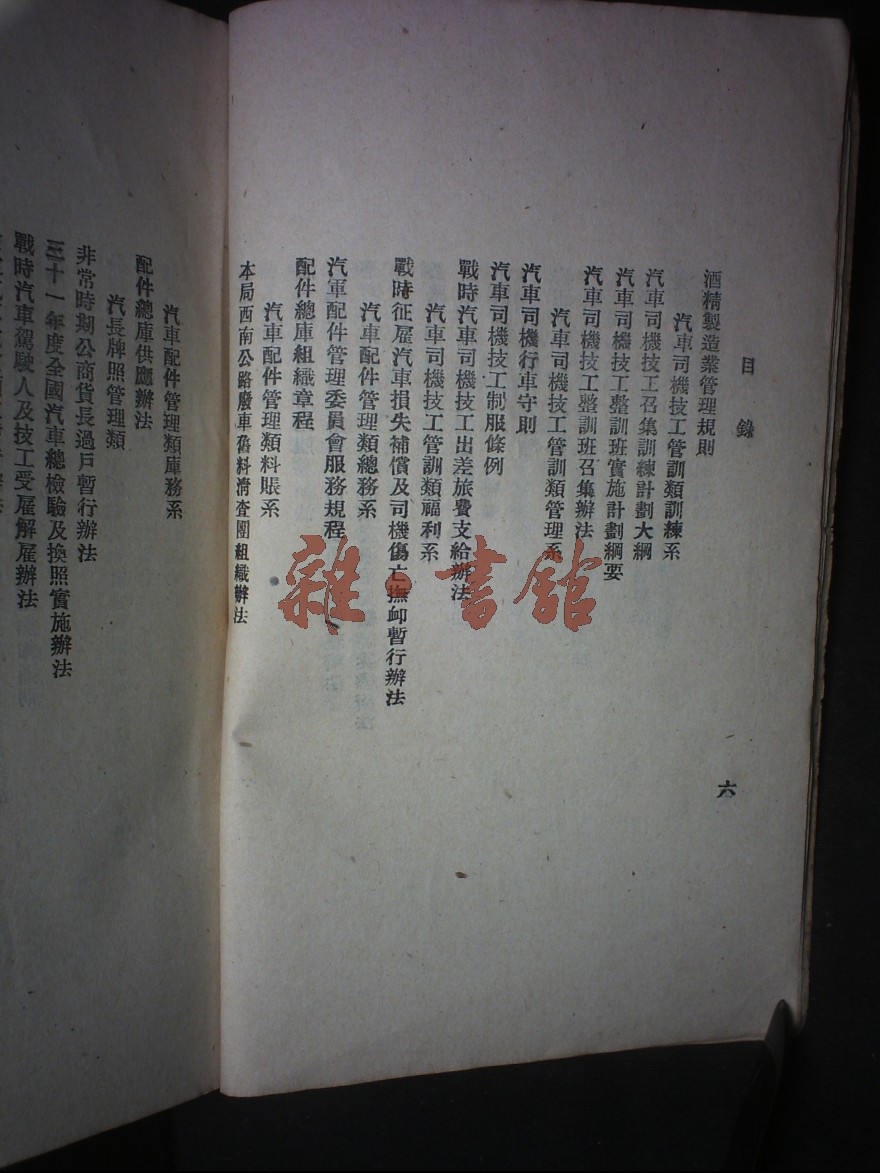 目錄
六
酒精製造業管理規則
汽車司機技工管訓類訓練系
汽車司機技工召集訓練計劃大綱
汽車司機技工整訓班實施計劃綱要
汽車司機技工整訓班召集辦法
汽車司機技工管訓類管理系
汽車司機行車守則
汽車司機技工制服條例
戰時汽車司機技工出差旅費支給辦法
汽車司機技工管訓類福利系
戰時征雇汽車損失補償及司機傷亡撫卹暫行辦法
汽車配件管理類總務系
汽車配件管理委員會服務規程
配件總庫組織章程
汽車配件管理類料賬系
本局西南公路廢車舊料清查團組織辦法
汽車配件管理類庫務系
配件總庫供應辦法
汽長牌照管理類
非常時期公商貨長過戶暫行辦法
三十一年度全國汽車總檢驗及換照實施辦法
戰時汽車駕駛人及技工受雇解雇辦法
雜·書館